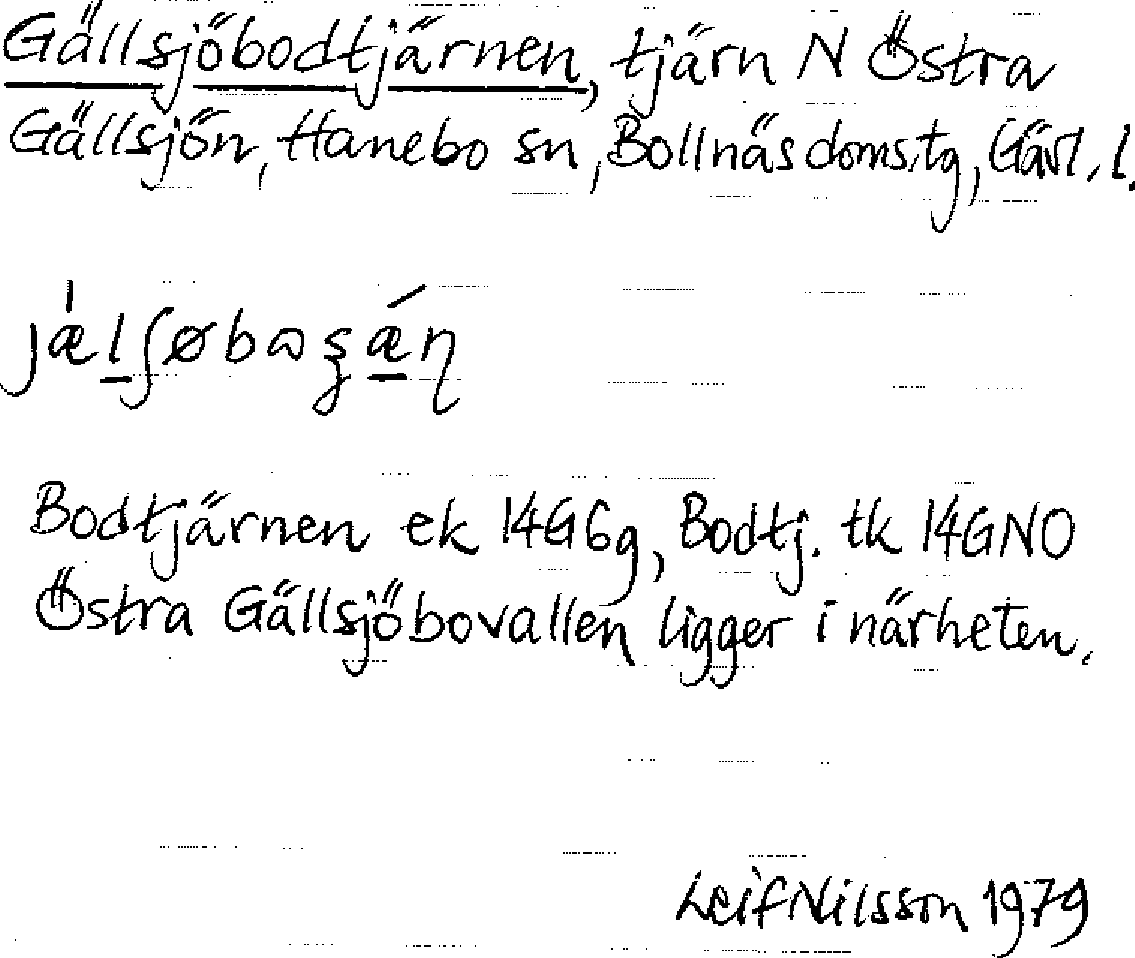 Gällsjöbodtjärnen, tjärn N Östra
Gällsjön, Hanebo sn, Bollnäs doms.tg, Gävl. l.
Bodtjärnen ek 14G6g, Bodtj. tk 14GNO
Östra Gällsjöbovallen ligger i närheten.
Leif Nilsson 1979